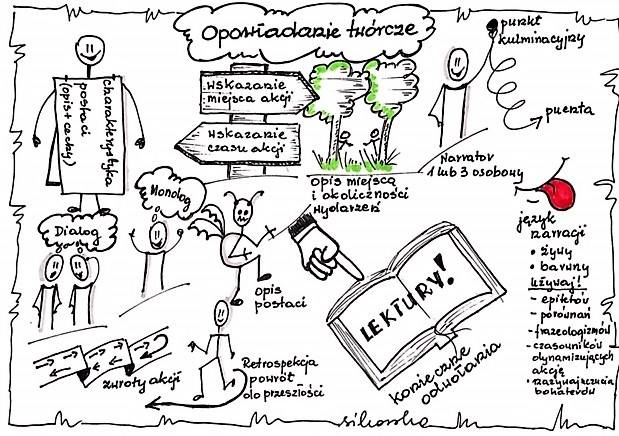 Opowiadanie twórcze
charakterystyka
postaci
(opis + cechy)
Wskazanie
miejsca akcji
Wskazanie
czasu akcji
opis miejsca
i okoliczności
wydarzeń
punkt
kulminacyjny
puenta
Narrator
1 lub 3 osobowy
Dialog
Monolog
opis
postaci
LEKTURY!
konieczne
odwołania
język
narracji
• żywy
• barwny
używaj!
- epitetów
- porównań
- frazeologizmów
- czasowników
dynamizujących
akcję
• nazywaj uczucia
bohaterów
zwroty akcji
Retrospekcja
powrót
do przeszłości
sikorska